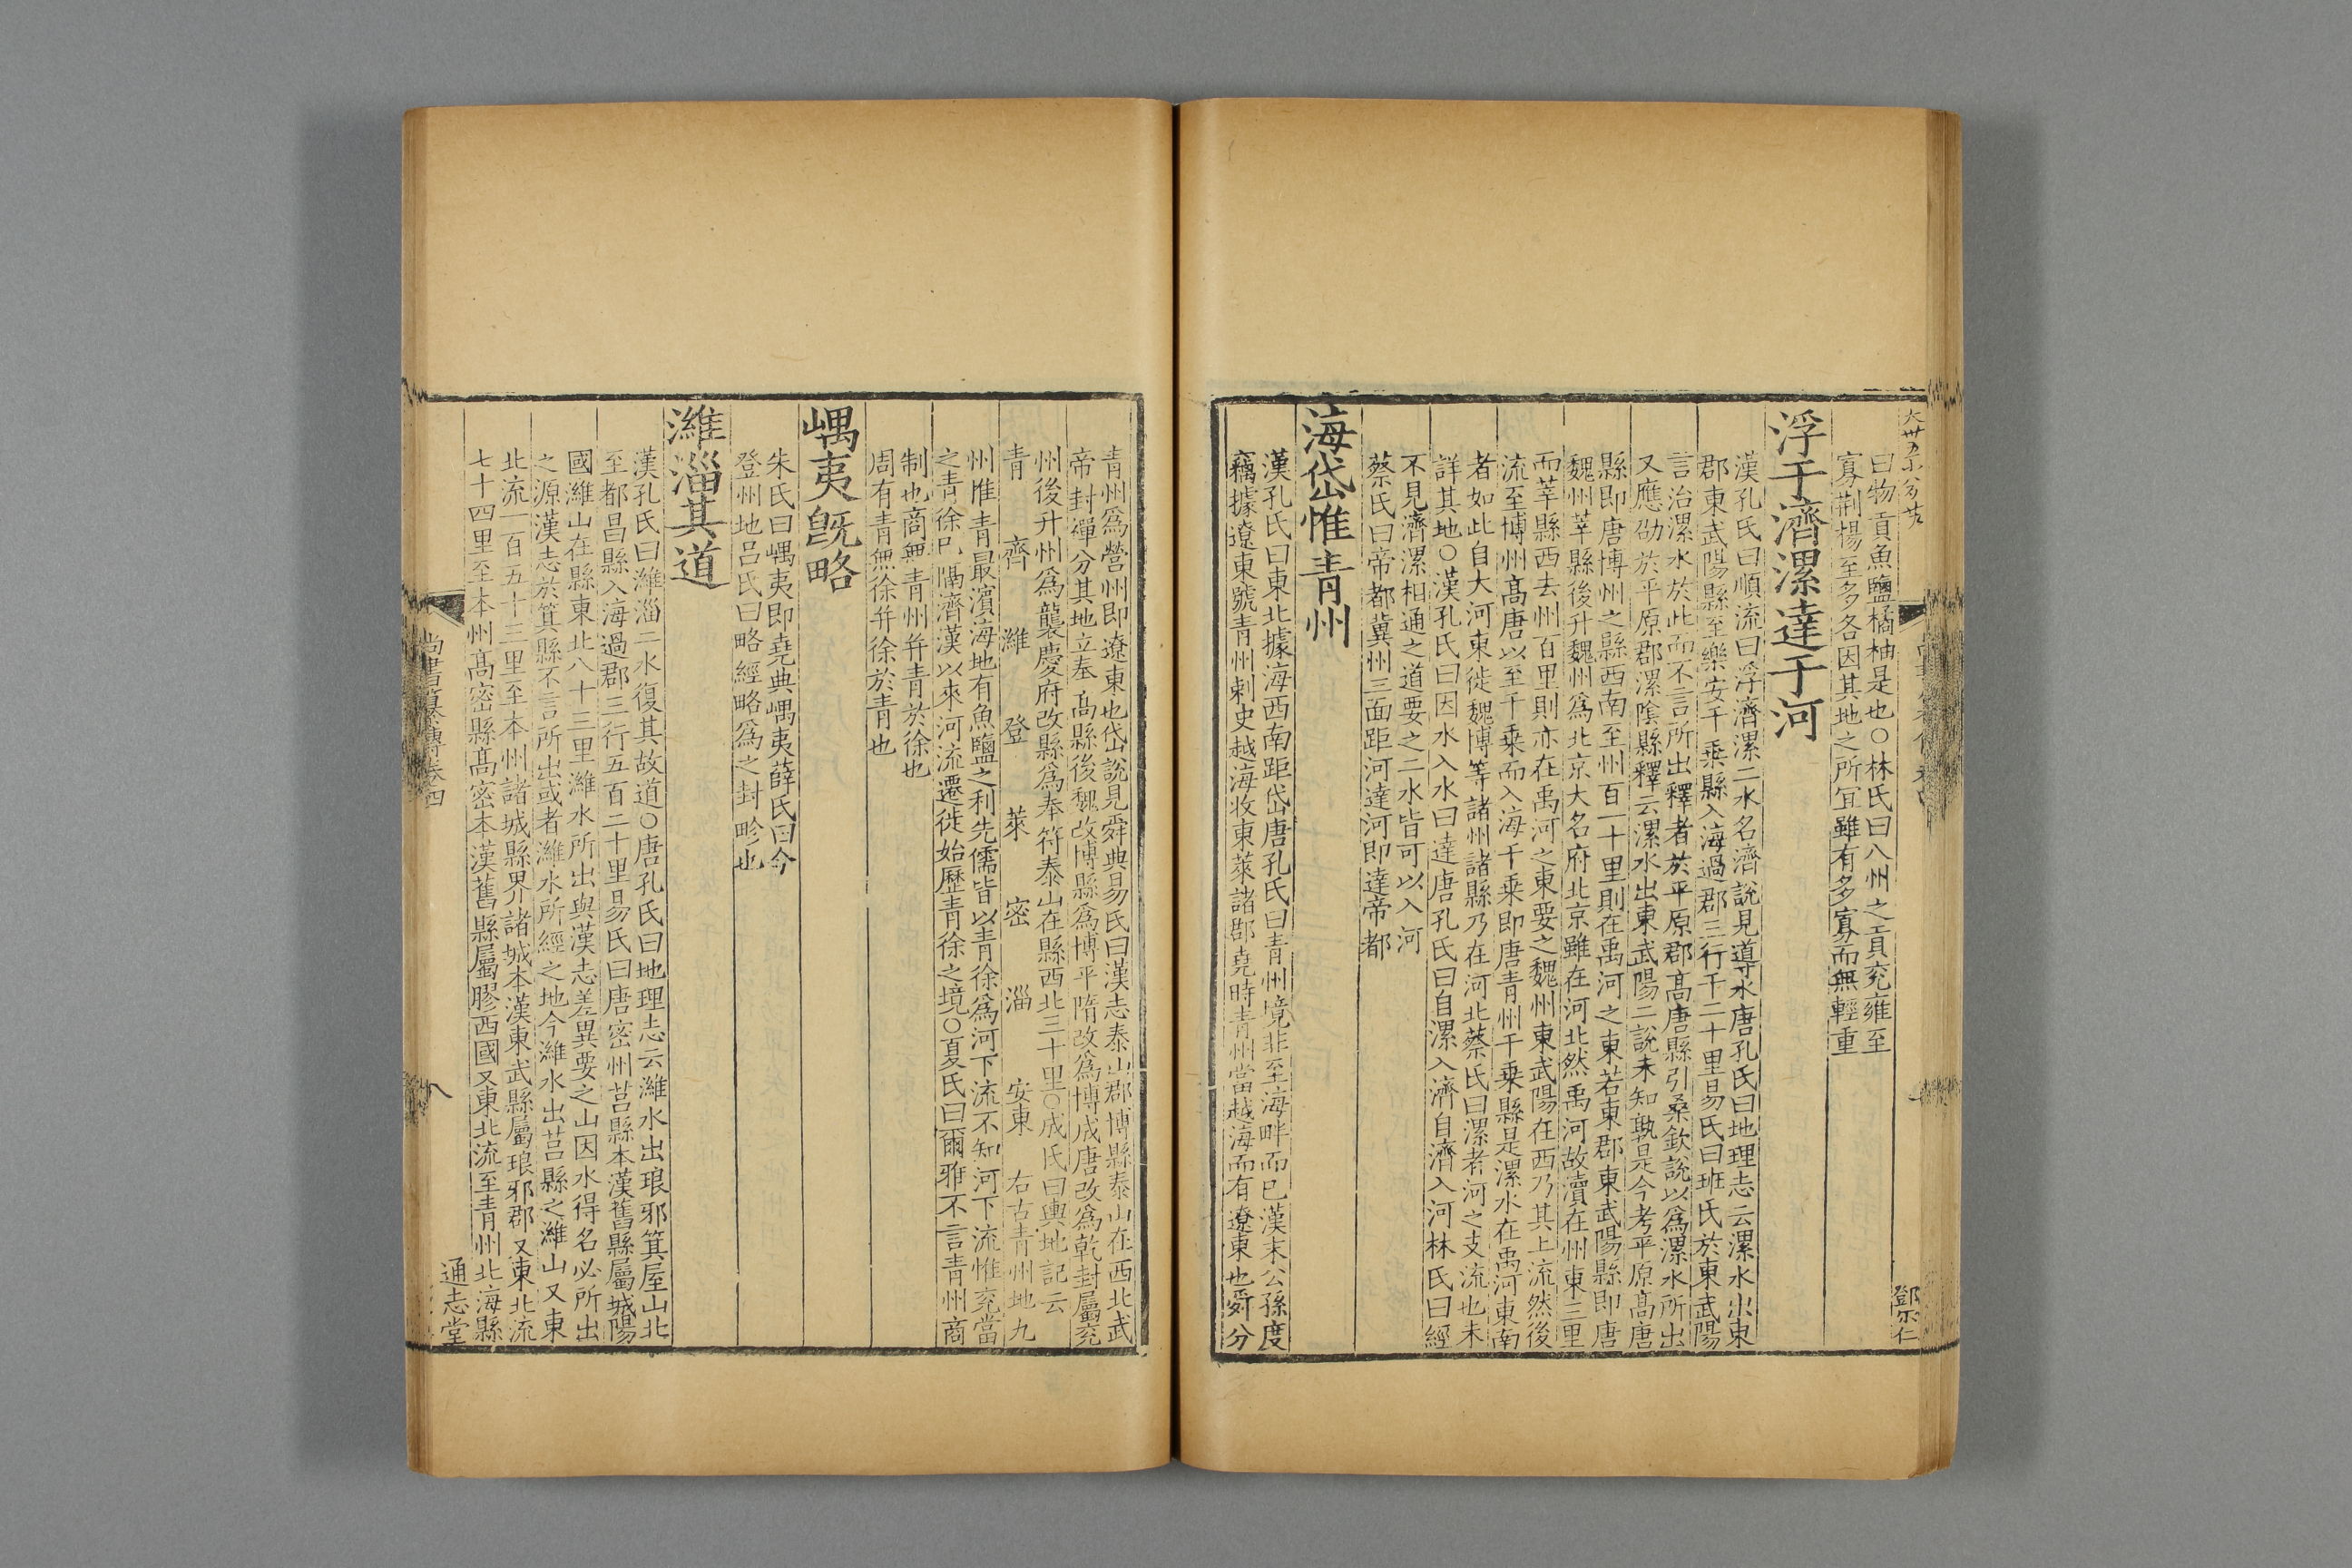 曰物貢魚鹽橘柚是也○林氏曰八州之貢兖雍至
寡荆楊至多各因其地之所冝雖有多寡而無輕重
鄧宗仁
浮于濟漯達于河
漢孔氏曰順流曰浮濟漯二水名濟說見導水唐孔氏曰地理志云漯水出東
郡東武陽縣至樂安千乗縣入海過郡三行千二十里易氏曰班氏於東武陽
言治漯水於此而不言所出釋者於平原郡髙唐縣引桑欽說以爲漯水所出
又應劭於平原郡漯隂縣釋云漯水出東武陽二說未知孰是今考平原髙唐
縣即唐博州之縣西南至州百一十里則在禹河之東若東郡東武陽縣即唐
魏州莘縣後升魏州爲北京大名府北京雖在河北然禹河故瀆在州東三里
而莘縣西去州百里則亦在禹河之東要之魏州東武陽在西乃其上流然後
流至博州髙唐以至千乗而入海千乗即唐青州千乗縣是漯水在禹河東南
者如此自大河東徙魏博等諸州諸縣乃在河北蔡氏曰漯者河之支流也未
詳其地○漢孔氏曰因水入水曰達唐孔氏曰自漯入濟自濟入河林氏曰經
不見濟漯相通之道要之二水皆可以入河
蔡氏曰帝都冀州三面距河達河即達帝都
海岱惟青州
漢孔氏曰東北據海西南距岱唐孔氏曰青州境非至海畔而已漢末公孫度
竊據遼東號青州刺史越海收東萊諸郡堯時青州當越海而有遼東也舜分
青州爲營州即遼東也岱說見舜典易氏曰漢志泰山郡博縣泰山在西北武
帝封禪分其地立奉髙縣後魏改博縣爲博平隋改爲博成唐改爲乾封屬兖
州後升州爲襲慶府改縣爲奉符泰山在縣西北三十里○成氏曰輿地記云
青 齊 濰 登 萊 密 淄 安東 右古青州地九
州惟青最濱海地有魚鹽之利先儒皆以青徐爲河下流不知河下流惟兖當
之青徐已隔濟漢以來河流遷徙始歷青徐之境○夏氏曰爾雅不言青州商
制也商無青州并青於徐也
周有青無徐并徐於青也
嵎夷旣略
朱氏曰嵎夷即堯典嵎夷薛氏曰今
登州地吕氏曰略經略爲之封畛也
濰淄其道
漢孔氏曰濰淄二水復其故道○唐孔氏曰地理志云濰水出琅邪箕屋山北
至都昌縣入海過郡三行五百二十里易氏曰唐密州莒縣本漢舊縣屬城陽
國濰山在縣東北八十三里濰水所出與漢志差異要之山因水得名必所出
之源漢志於箕縣不言所出或者濰水所經之地今濰水出莒縣之濰山又東
北流一百五十三里至本州諸城縣界諸城本漢東武縣屬琅邪郡又東北流
七十四里至本州髙密縣髙密本漢舊縣屬膠西國又東北流至青州北海縣
尚書纂傳卷四
八
通志堂